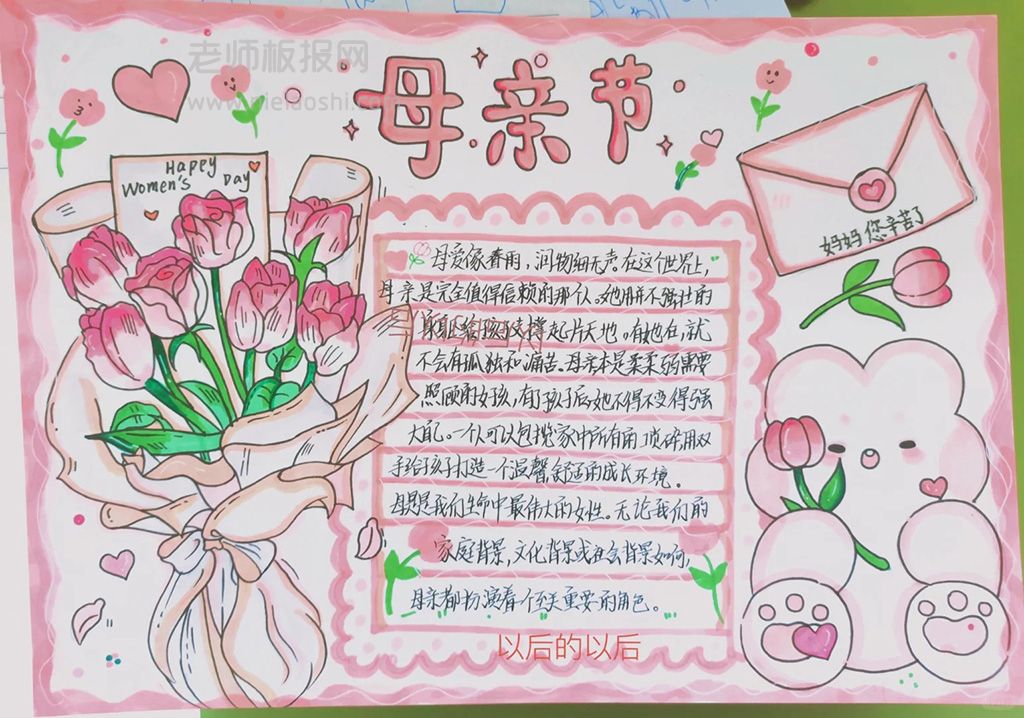 老师板报网
母亲节
Happy
Women's Day
妈妈您辛苦了
母爱像春雨，润物细无声。在这个世界上，
母亲是完全值得信赖的那个人。她用并不强壮的
给孩子支撑起一片天地。有她在，就
不会有孤独和痛苦。母亲本是柔柔弱弱需要
照顾的女孩，有了孩子后她不得不变得强
大起。一个人可以包揽家中所有的 用双
手给孩子打造一个温馨舒适的成长环境。
母是我们生命中最伟大的女性。无论我们的
家庭背景，文化背景或社会背景如何，
母亲都扮演着个至关重要的角色。
以后的以后